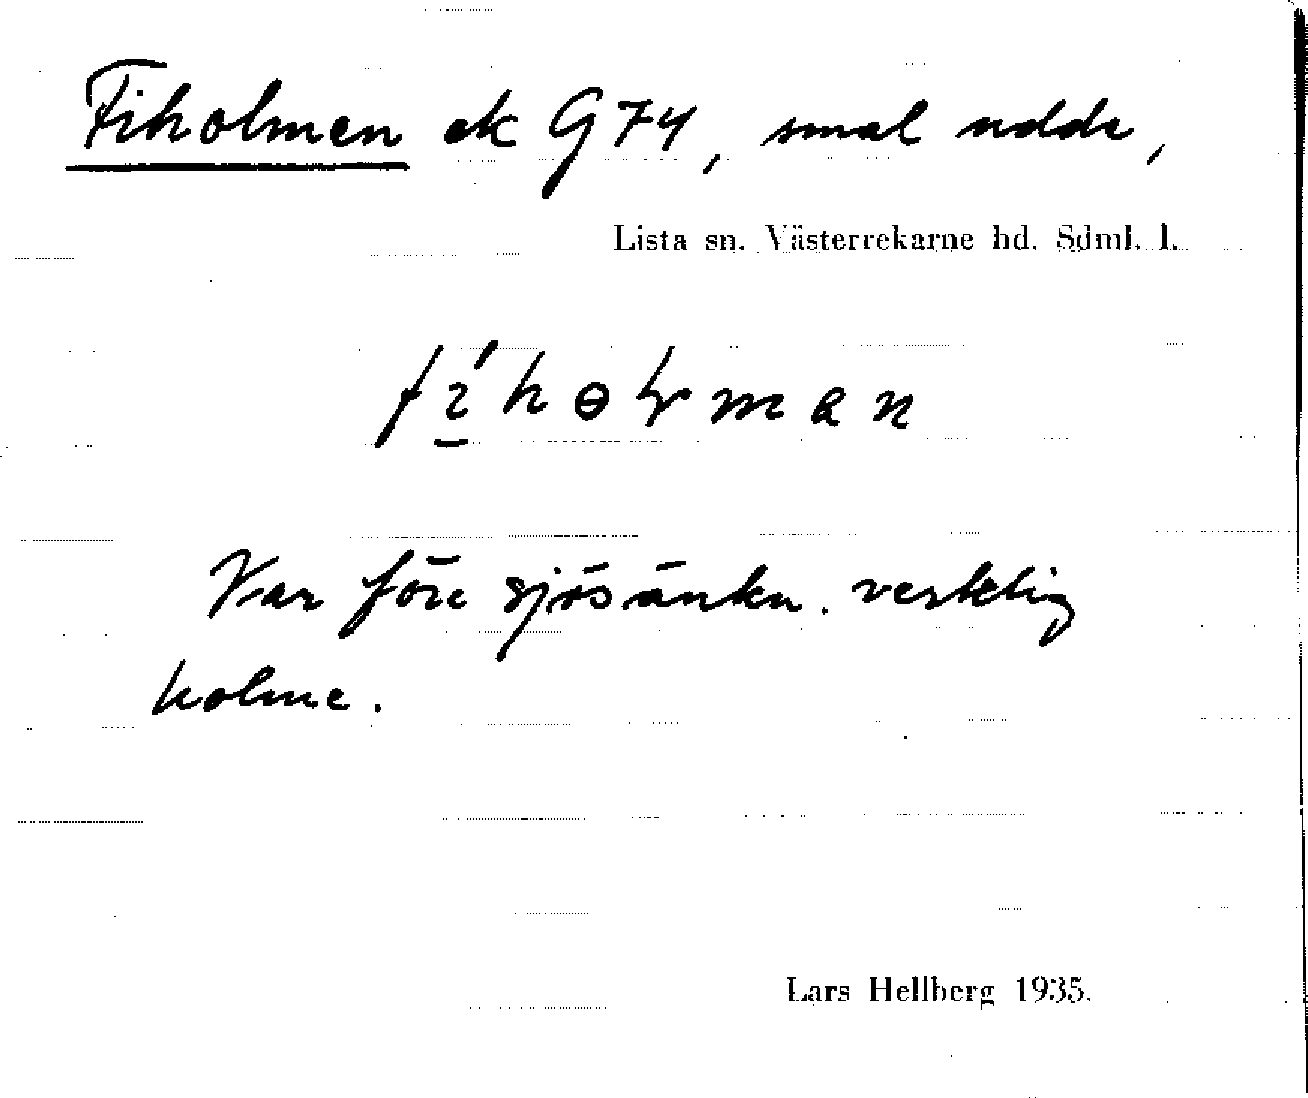 Fiholmen ek G 74, smal udde,
Lista sn. Västerrekarne hd. Sdml. l.
Var före sjösänkn. verklig
holme.
Lars Hellberg 1935.